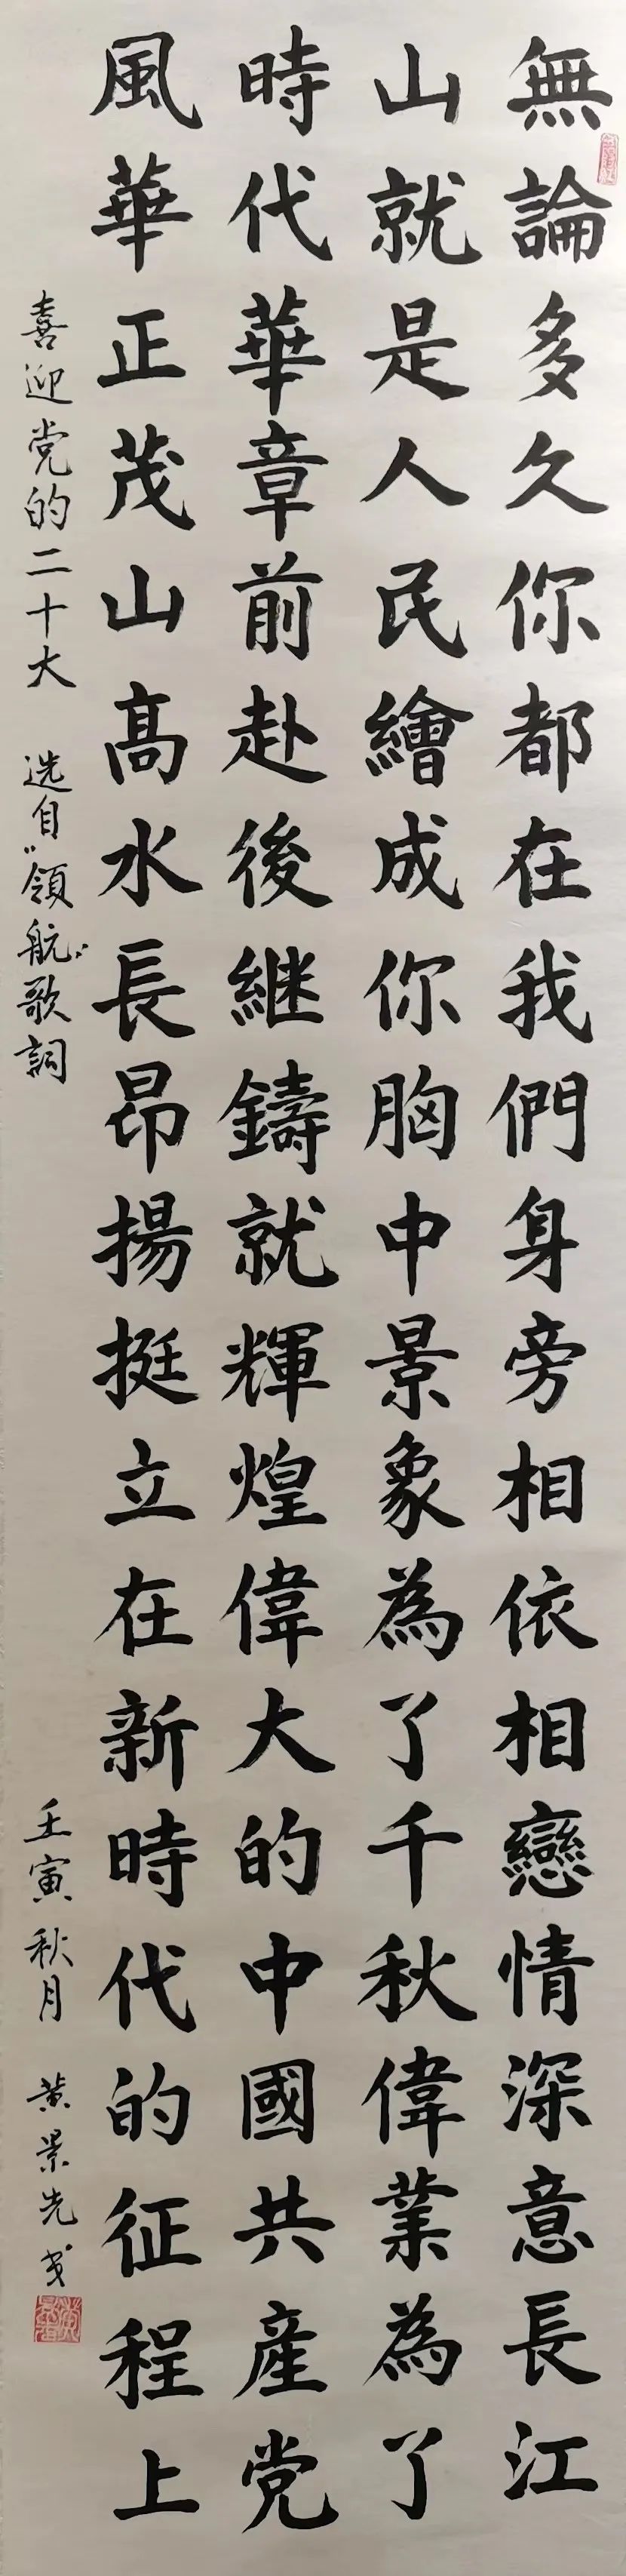 無論多久你都在我們身旁相依相戀情深意長江
山就是人民繪成你胸中景象為了千秋偉業為了
時代華章前赴後継鑄就輝煌偉大的中國共産党
風華正茂山高水長昂揚挺立在新時代的征程上
喜迎党的二十大 选自"領航"歌詞
壬寅秋月 黄景先书